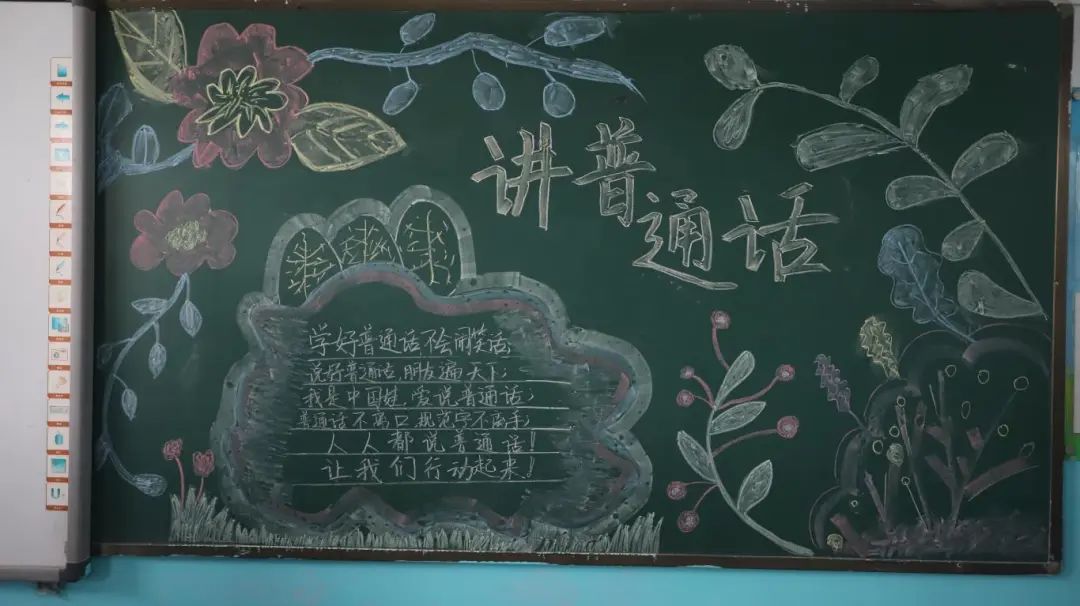 讲普通话
学好普通话不会闹笑话;
说好普通话,朋友遍天下;
我是中国娃,爱说普通话;
普通话不离口,规范字不离手;
人人都说普通话!
让我们行动起来!